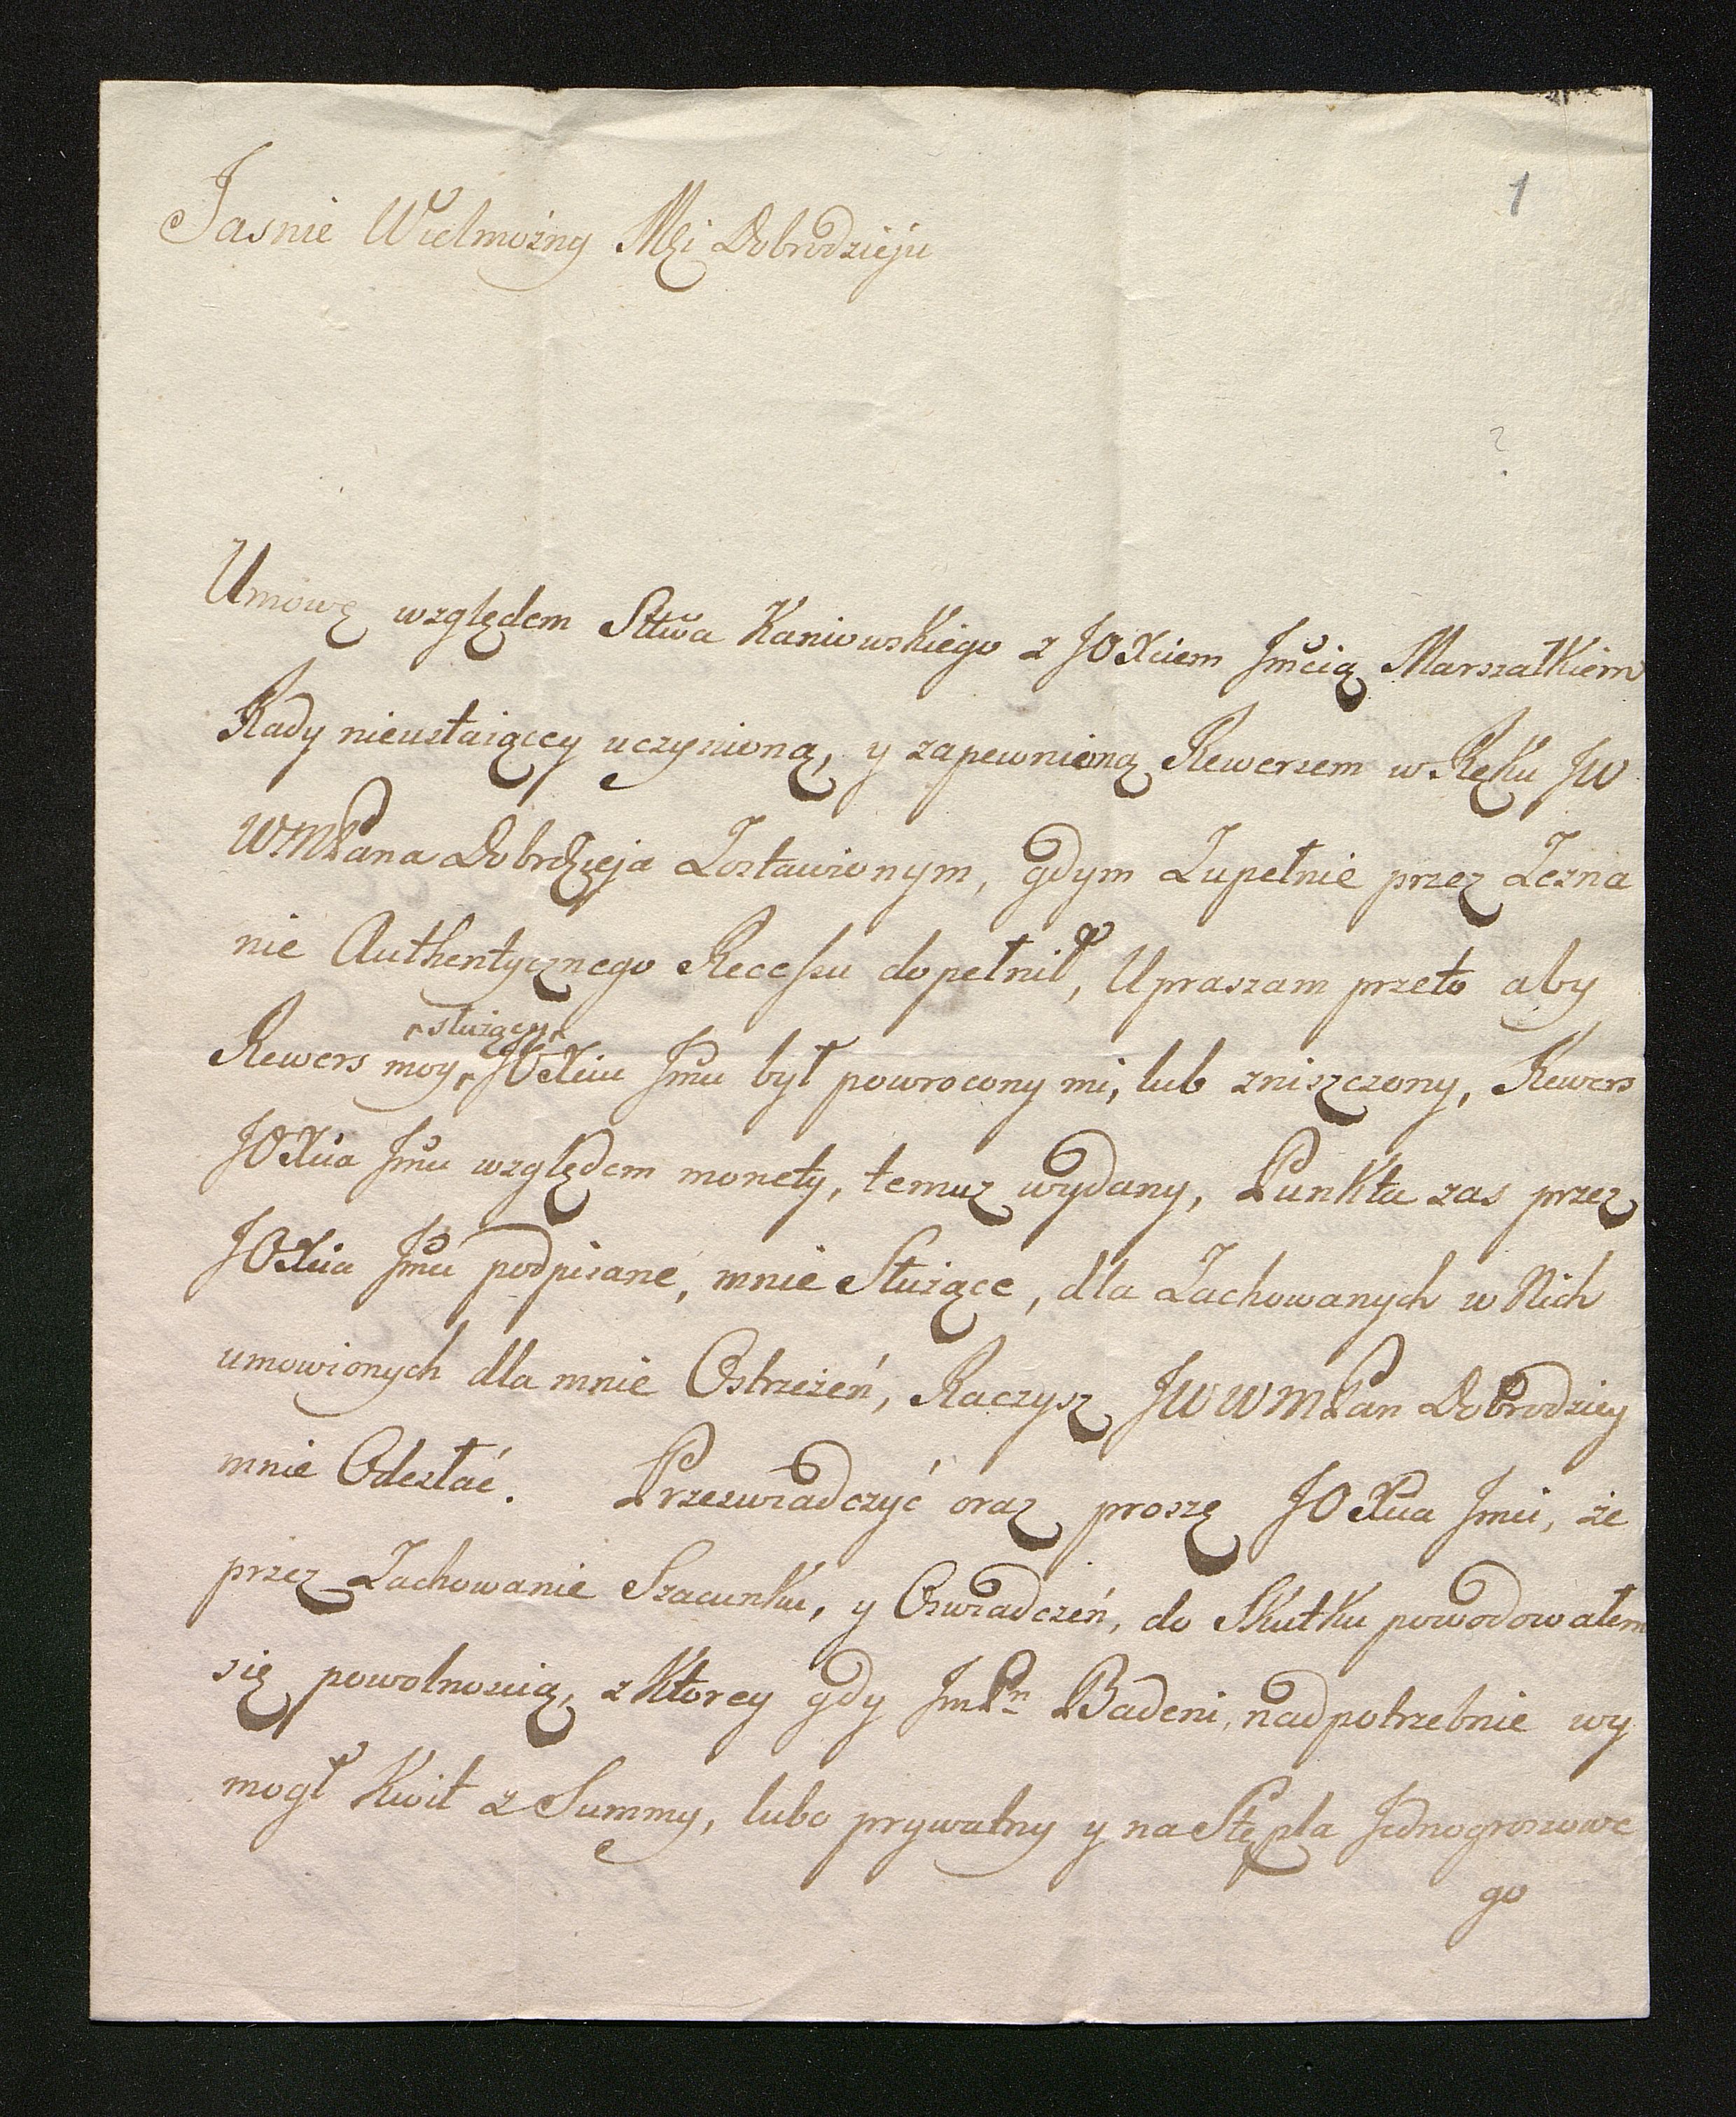 1
Jasnie Wielmożny Mći Dobrodzieju
?
Umowę względem Sttwa Kaniowskiego z JOXciem Jmcią Marszałkiem
Rady nieustaiącey uczynioną, y zapewnioną Rewersem w Ręku JW
WMPana Dobrdzieja Zostawionym, gdym Zupełnie przez Zezna
nie Authentycznego Recessu dopełnił, Upraszam przeto aby
służący
Rewers moy JOXciu Jmci był powrocony mi, lub zniszczony, Rewers
JOXcia Jmci względem monety, temuz wydany, Punkta zas przez
JOXcia Jmci podpisane, mnie Służące, dla Zachowanych w Nich
umowionych dla mnie Ostrzeżeń, Raczysz JWWMPan Dobrodziey
mnie Odesłać. Przeswiadczyć oraz proszę JOXcia Jmci, że
przez Zachowanie Szacunku, y Oswiadczeń, do Skutku powodowałem
się powolnoscią, z Ktorey gdy JmPn Badeni, nadpotrzebnie wy
mogł Kwit z Summy, lubo prywatny y na Stępla Jednogroszowe
go